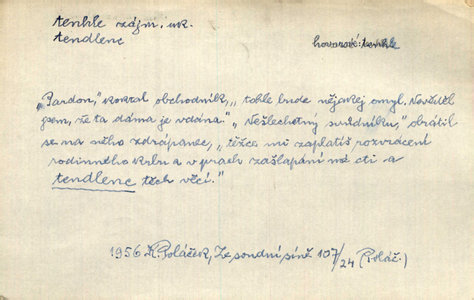 tenhle zájm. uk.
tendlenc
hovorové: tenhle
„Pardon,“ koktal obchodník, „tohle bude nějakej omyl. Nevěděl
jsem, že ta dáma je vdána.“ „Nešlechetný svůdníku,“ obrátil
se na něho zdrápanec, „těžce mi zaplatíš rozvrácení
rodinného krbu a v prach zašlapání mé cti a
tendlenc těch věcí.“
1956 K. Poláček, Ze soudní síně 107/24 (Poláč.)